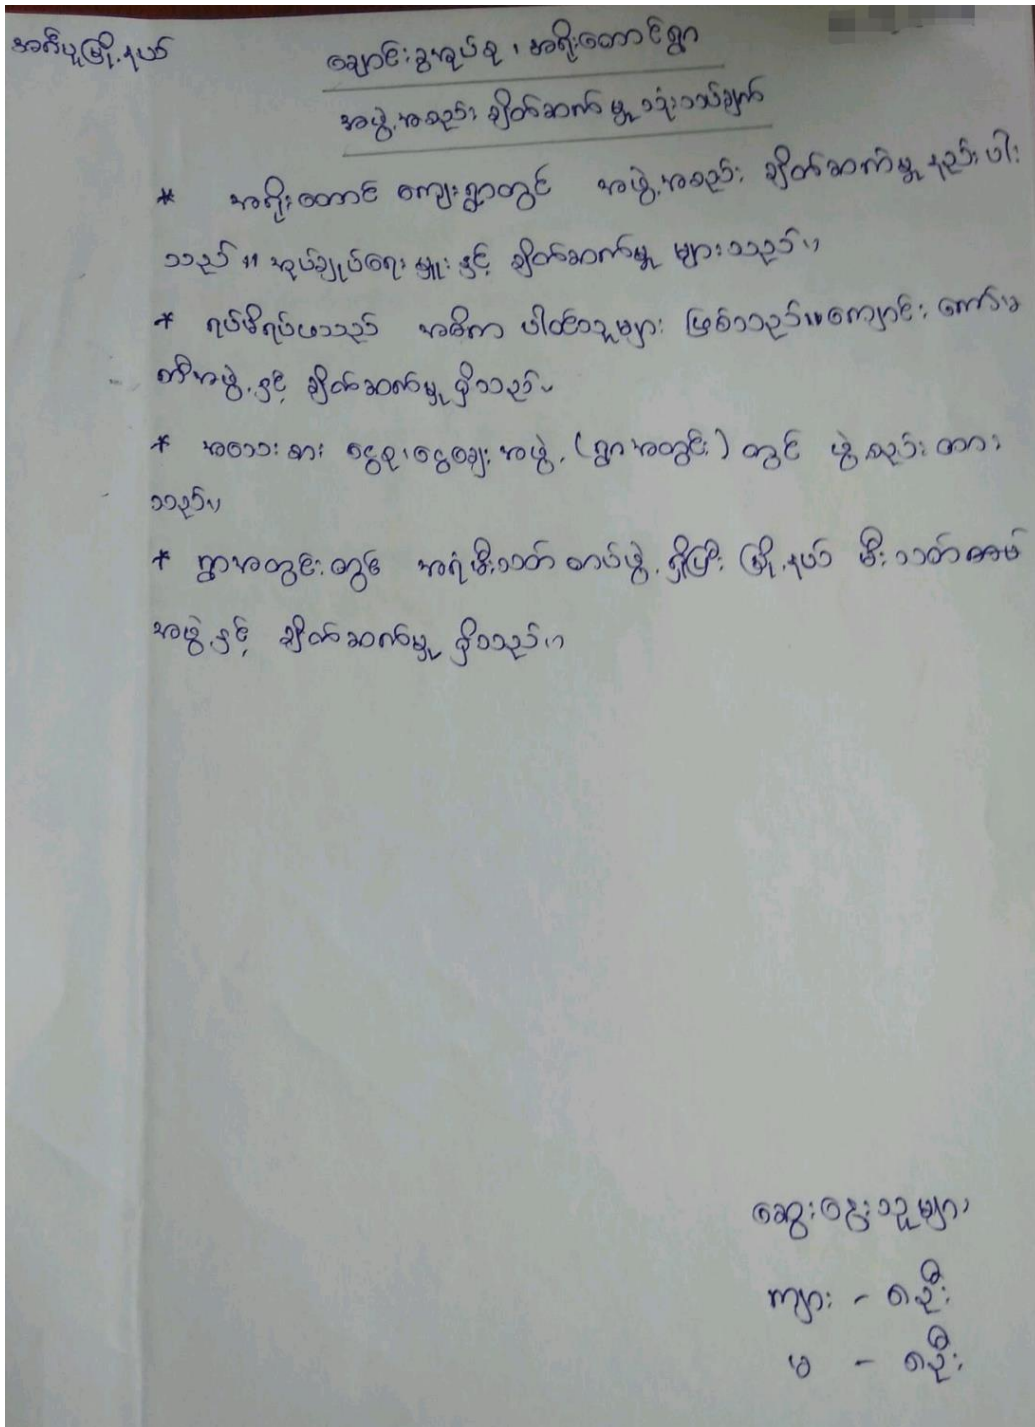 အင်ပုမြို့နယ်
ချောင်းခွအုပ်စု၊ အရိုးတောင်ရွာ
အဖွဲ့အစည်း ချိတ်ဆက်မှု သုံးသပ်ချက်
* အရိုးတောင် ကျေးရွာတွင် အဖွဲ့အစည်း ချိတ်ဆက်မှု နည်းပါး
သည်။ အုပ်ချုပ်ရေးမှူးနှင့် ချိတ်ဆက်မှု များသည်။
* ရပ်မိရပ်ဖသည် အဓိက ပါဝင်သူများ ဖြစ်သည်။ ကျောင်းကော်မ
တီအဖွဲ့နှင့် ချိတ်ဆက်မှု ရှိသည်။
* အသေးစား ငွေစုငွေချေးအဖွဲ့ (ရွာအတွင်း) တွင် ဖွဲ့စည်းထား
သည်။
* ရွာအတွင်းတွင် အရံမီးသတ်တပ်ဖွဲ့ ရှိပြီး မြို့နယ် မီးသတ်တပ်
အဖွဲ့နှင့် ချိတ်ဆက်မှု ရှိသည်။
ဆွေးနွေးသူများ
ကျား - ၈ဦး
မ - ၈ဦး